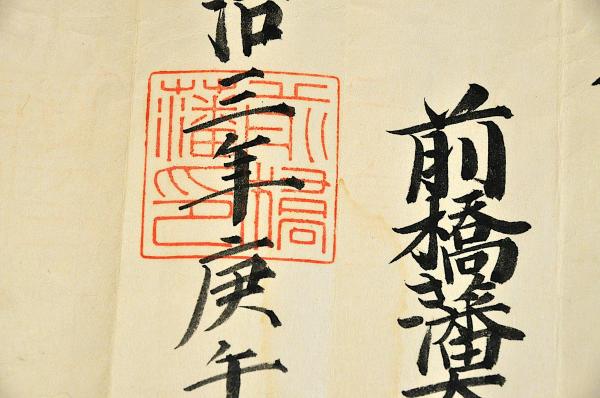 前橋藩
治三年庚午
前橋
藩印